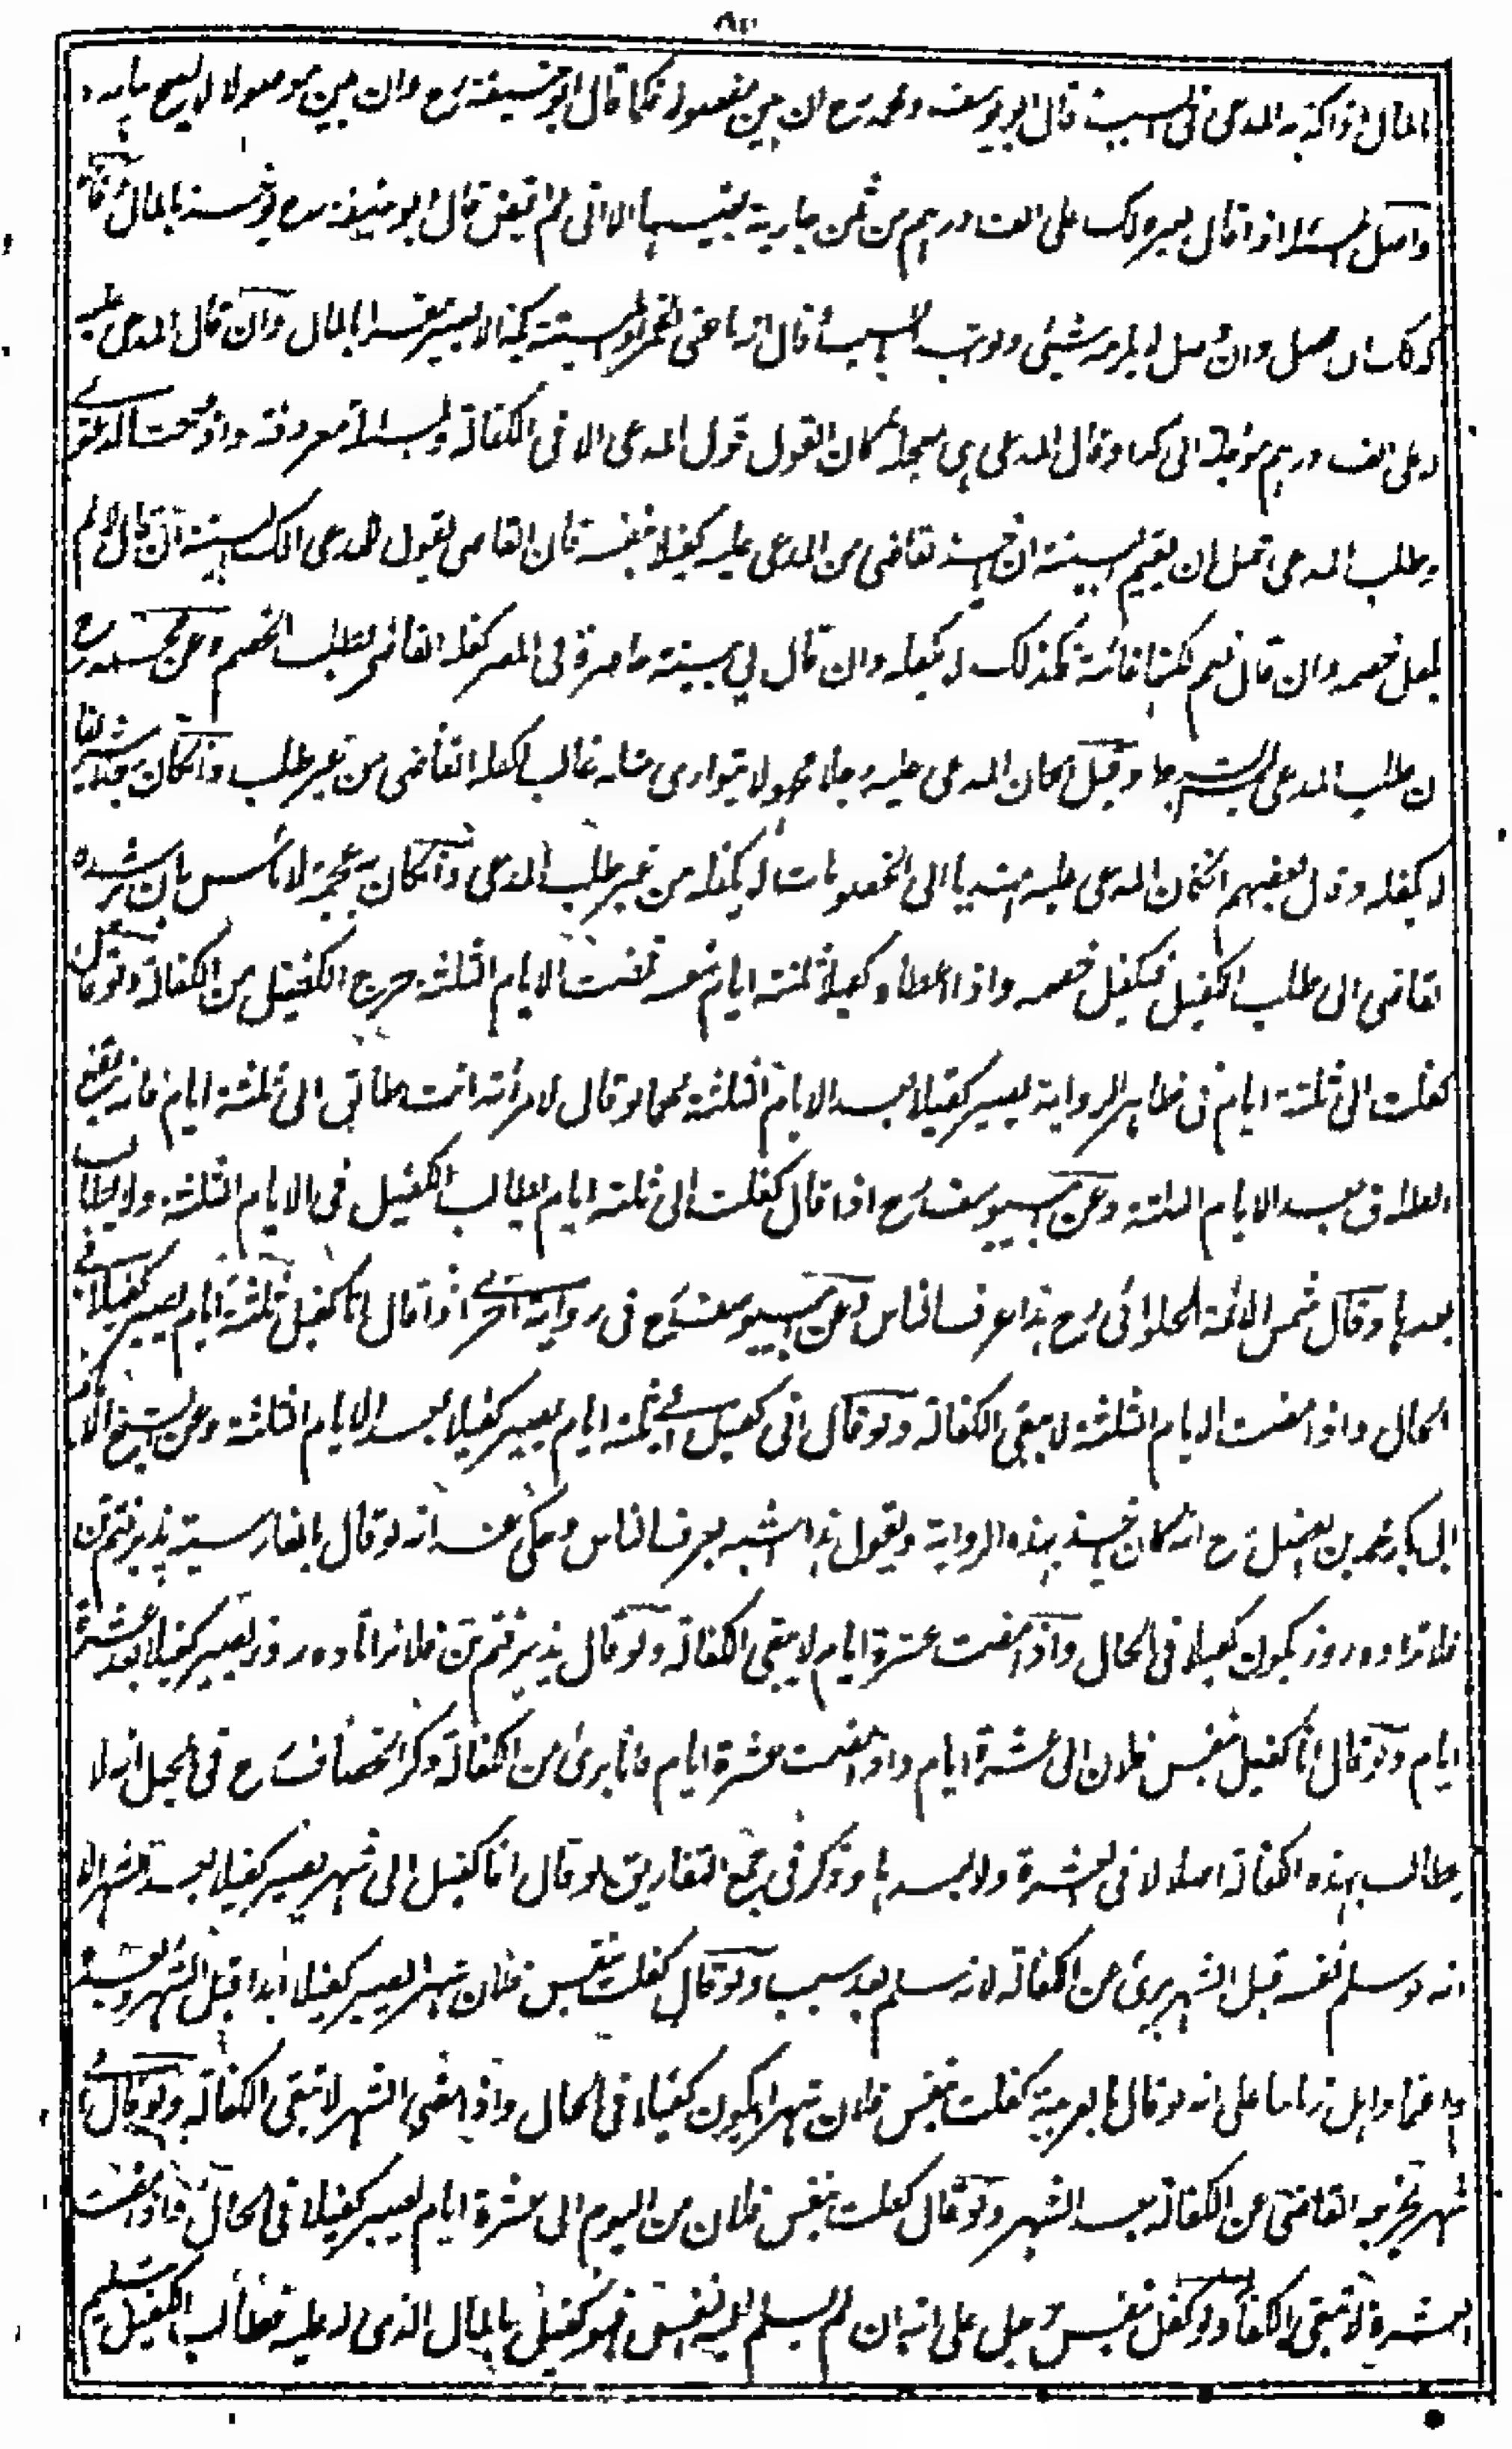 المال اذا كذبه المدعى فى السبب قال ابو يوسف و محمد رح ان بين مفصولا فكما قال ابو حنيفة رح وان بين موصولا لا يصح
واصل المسئلة اذا قال لغيره لك على الف درهم من ثمن جارية بعتنيها الا انى لم اقبض قال ابو حنيفة رح يؤخذ بالمال
وصل وان فصل لم يلزمه شيئ ولو السبب فقال انما عنى الخمر او الميتة يكذبه لا يصير مقرا بالمال وان قال المدعى عليه
له على الف درهم مؤجلة الى كذا وقال المدعى هى معجلة كان القول قول المدعى الا فى الكفالة والمسئلة معروفة واذا صحت الدعوى
وطلب المدعى قبل ان يقيم البينة ان ياخذ القاضى من المدعى عليه كفيلا بنفسه فان القاضى يقول للمدعى الك بينة ان قال لا لم
يكفل خصمه وان قال نعم لكنها غائبة فكذلك لا يكفله وان قال لى بينة حاضرة فى المصر كفله القاضى بطلب الخصم وعن محمد رح
ان طلب المدعى ليس بشرط وقيل ان كان المدعى عليه رجلا مجهولا يتوارى مثله غالبا يكفله القاضى من غير طلب وان كان رجلا
لا يكفله وقال بعضهم ان كان المدعى عليه مهتديا الى الخصومات لا يكفله من غير طلب المدعى وان كان به عجمة لا باس بان يرشده
القاضى الى طلب الكفيل فيكفل خصمه واذا اعطاه كفيلا ثلثة ايام فمضت الايام الثلثة خرج الكفيل من الكفالة ولو قال
كفلت الى ثلثة ايام فى ظاهر الرواية يصير كفيلا بعد الايام الثلثة كما لو قال لامرأته انت طالق الى ثلثة ايام فانه يقع
الطلاق بعد الايام الثلثة وعن ابى يوسف رح اذا قال كفلت الى ثلثة ايام يطالب الكفيل فى الايام الثلثة ولا يطالب
بعدها وقال شمس الائمة الحلوائى رح هذا عرف الناس وعن ابى يوسف رح فى رواية اخرى اذا قال انا كفيل ثلثة ايام يصير كفيلا فى
الحال واذا مضت الايام الثلثة لا يبقى الكفالة ولو قال انى كفيل الى ثلثة ايام يصير كفيلا بعد الايام الثلثة وعن الشيخ الامام
ابى بكر محمد بن الفضل رح انه كان ياخذ بهذه الرواية ويقول هذا اشبه بعرف الناس وحكى عنه انه لو قال بالفارسية پذيرفتم تن
فلانرا ده روز يكون كفيلا فى الحال واذا مضت عشرة ايام لا يبقى الكفالة ولو قال پذيرفتم تن فلانرا تا ده روز يصير كفيلا بعد عشرة
ايام ولو قال انا كفيل بنفس فلان الى عشرة ايام واذا مضت عشرة ايام فانا برئ من الكفالة ذكر الخصاف رح فى الحيل انه لا
يطالب بهذه الكفالة اصلا لا فى العشرة ولا بعدها وذكر فى جمع التفاريق لو قال انا كفيل الى شهر يصير كفيلا بعد الشهر الا
انه لو سلم نفسه قبل الشهر يبرئ عن الكفالة لانه سلم بعد سبب ولو قال كفلت بنفس فلان شهرا يصير كفيلا ابدا قبل الشهر وبعده
واهل زماننا على انه لو قال بالعربية كفلت بنفس فلان شهرا يكون كفيلا فى الحال واذا مضى الشهر لا تبقى الكفالة ولو قال
شهر يخرجه القاضى عن الكفالة بعد الشهر ولو قال كفلت بنفس فلان من اليوم الى عشرة ايام يصير كفيلا فى الحال فاذا مضت
العشرة لا تبقى الكفالة ولو كفل بنفس رجل على انه ان لم يسلم اليه نفس فهو كفيل بالمال الذى له عليه فطالب الكفيل بتسليم